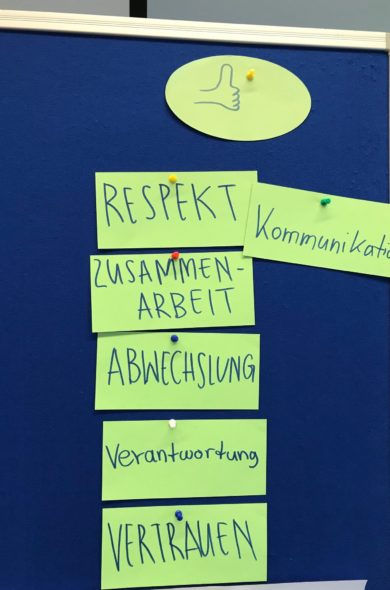 RESPEKT
Kommunikatio
ZUSAMMEN-
ARBEIT
ABWECHSLUNG
Verantwortung
VERTRAUEN